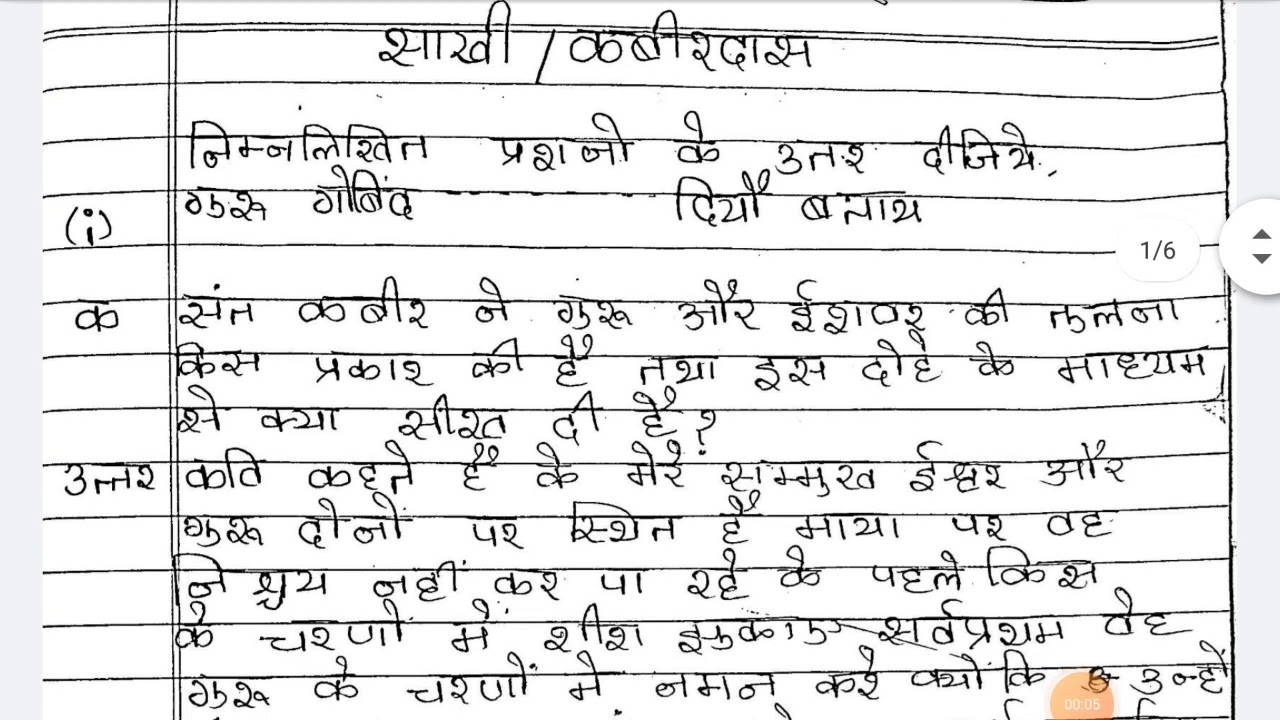 साखी / कबीरदास
निम्नलिखित प्रशनो के उतर दीजिये,
(i) गुरू गोबिंद ---------- दियौं बताय
1/6
क संत कबीर ने गुरू और ईशवर की तुलना
किस प्रकार की हैं तथा इस दोहे के माध्यम
से क्या सीख दी हैं?
उत्तर कवि कहते हैं के मेरे सम्मुख ईश्वर और
गुरू दोनों पर स्थित हैं माया पर वह
निश्चय नहीं कर पा रहे के पहले किस
के चरणों में शीश झुकाए सर्वप्रथम वेह
गुरू के चरणों मे नमन करे क्योंकि उन्हों
00:05